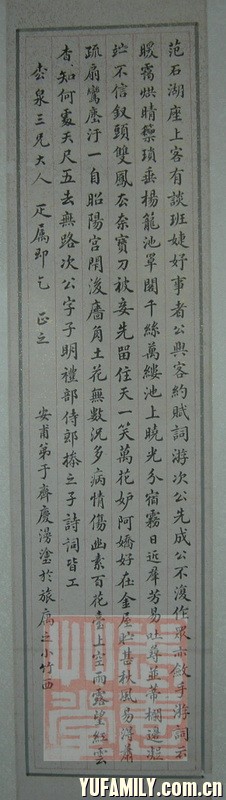 范石湖座上客有談班婕妤事者公與客約賦詞游次公先成公不復作眾亦斂手游詞云
暖靄烘晴瑣垂楊籠池罩閣千絲萬縷池上曉光分宿霧日近羣芳易吐尋並蒂欄邊凝
竚不信釵頭雙鳳去奈寶刀被妾先留住天一笑萬花妒阿嬌好在金屋貯甚秋風易得蕭
疏扇鸞塵汙一自昭陽宮閉後牆角土花無數況多病情傷幽素百花臺上空雨露望紅雲
杳知何處天尺五去無路次公字子明禮部侍郎操之子詩詞皆工
泉三兄大人 疋屬即乞 正之
安甫弟于齊慶漫塗於旅寓之小竹西
YUFAMILY.COM.CN